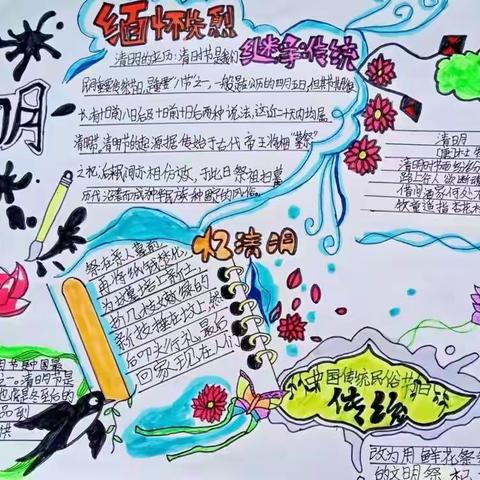 缅怀先烈
继承传统
清明的来历:清明节是我们
民间重要传统节日,是重要"八节"之一,一般是公历的四月五日,但其节期很
长,有十日前八日后及十日前十日后两种说法,这近二十天内均属
清明节,清明节的起源,据传始于古代帝王将相"墓祭"
之礼,后来民间亦相仿效,于此日祭祖扫墓
历代沿袭而成为中华民族一种固定的风俗。
明
清明
清明时节雨纷纷
路上行人欲断魂
借问酒家何处
牧童遥指杏花村
忆清明
祭在亲人墓前
再将纸钱焚化
为坟墓培上新土
折几枝嫩绿的
新枝插在坟上,然
后叩头行礼,最后
回家,现在人们
中国传统民俗节日
传统
改为用鲜花祭
的文明祭